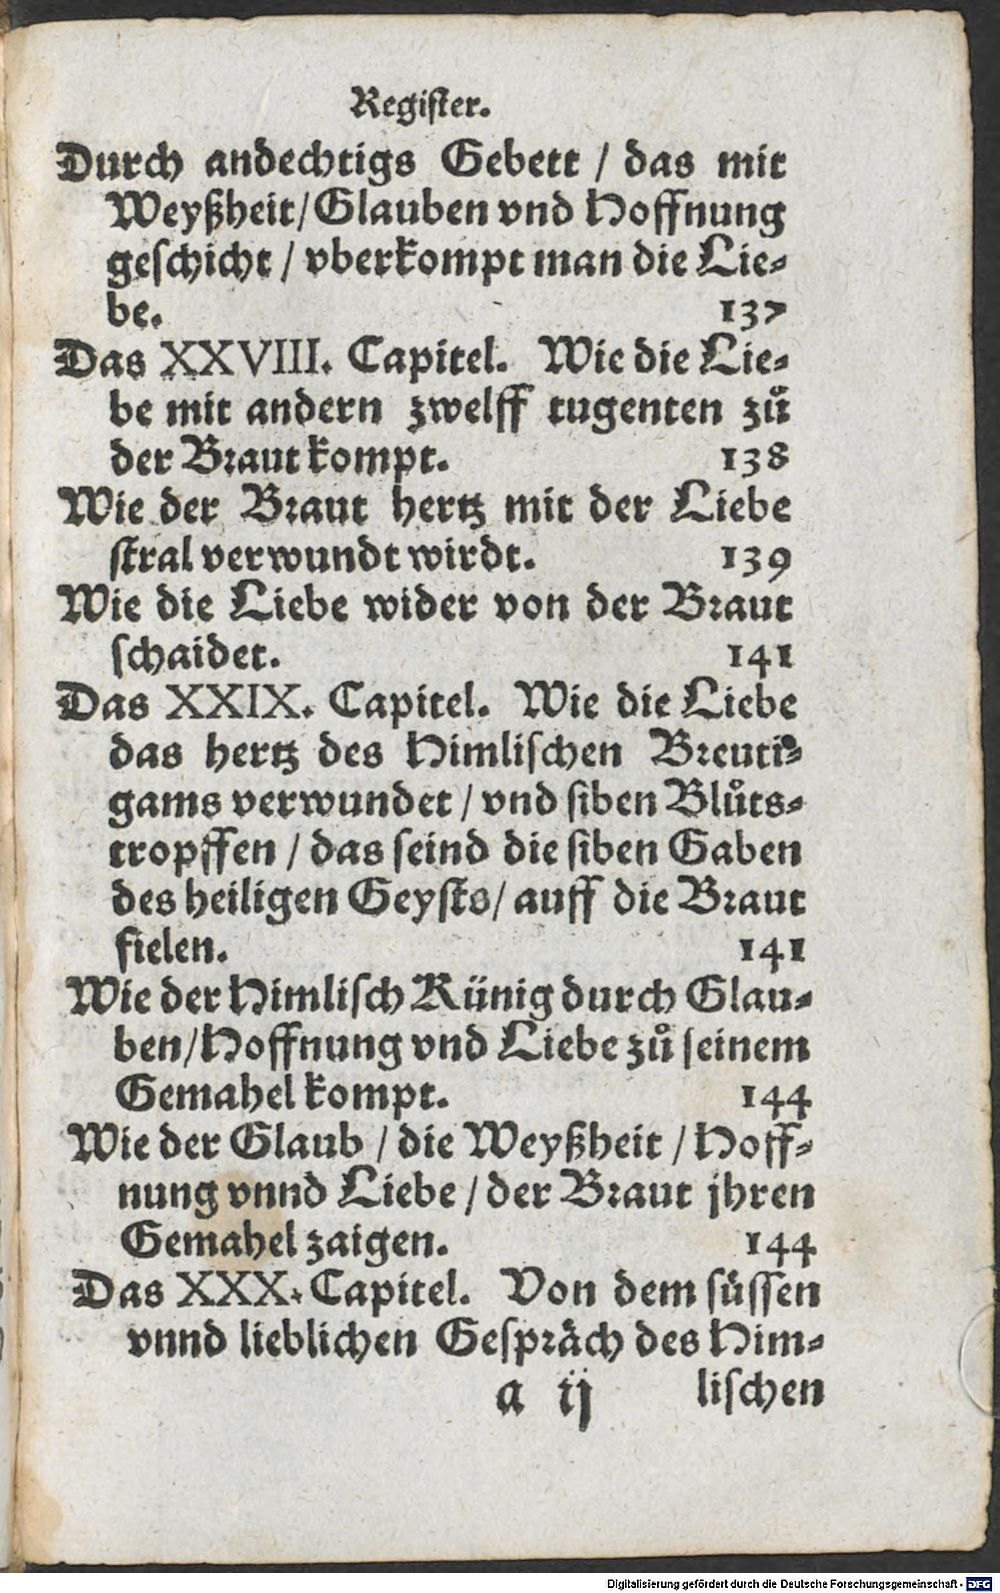 Register.
Durch andechtigs Gebett / das mit
Weyßheit/Glauben vnd Hoffnung
geſchicht / vberkompt man die Lie⸗
be. 137
Das XXVIII. Capitel. Wie die Lie⸗
be mit andern zwelff tugenten zuͦ
der Braut kompt. 138
Wie der Braut hertz mit der Liebe
ſtral verwundt wirdt. 139
Wie die Liebe wider von der Braut
ſchaidet. 141
Das XXIX. Capitel. Wie die Liebe
das hertz des Himliſchen Breuti⸗
gams verwundet / vnd ſiben Bluͦts⸗
tropffen / das ſeind die ſiben Gaben
des heiligen Geyſts/ auff die Braut
fielen. 141
Wie der Himliſch Künig durch Glau⸗
ben/Hoffnung vnd Liebe zuͦ ſeinem
Gemahel kompt. 144
Wie der Glaub / die Weyßheit / Hoff⸗
nung vnnd Liebe / der Braut jhren
Gemahel zaigen. 144
Das XXX. Capitel. Von dem ſüſſen
vnnd lieblichen Geſpraͤch des Him⸗
a ij liſchen
Digitalisierung gefördert durch die Deutsche Forschungsgemeinschaft - DFG